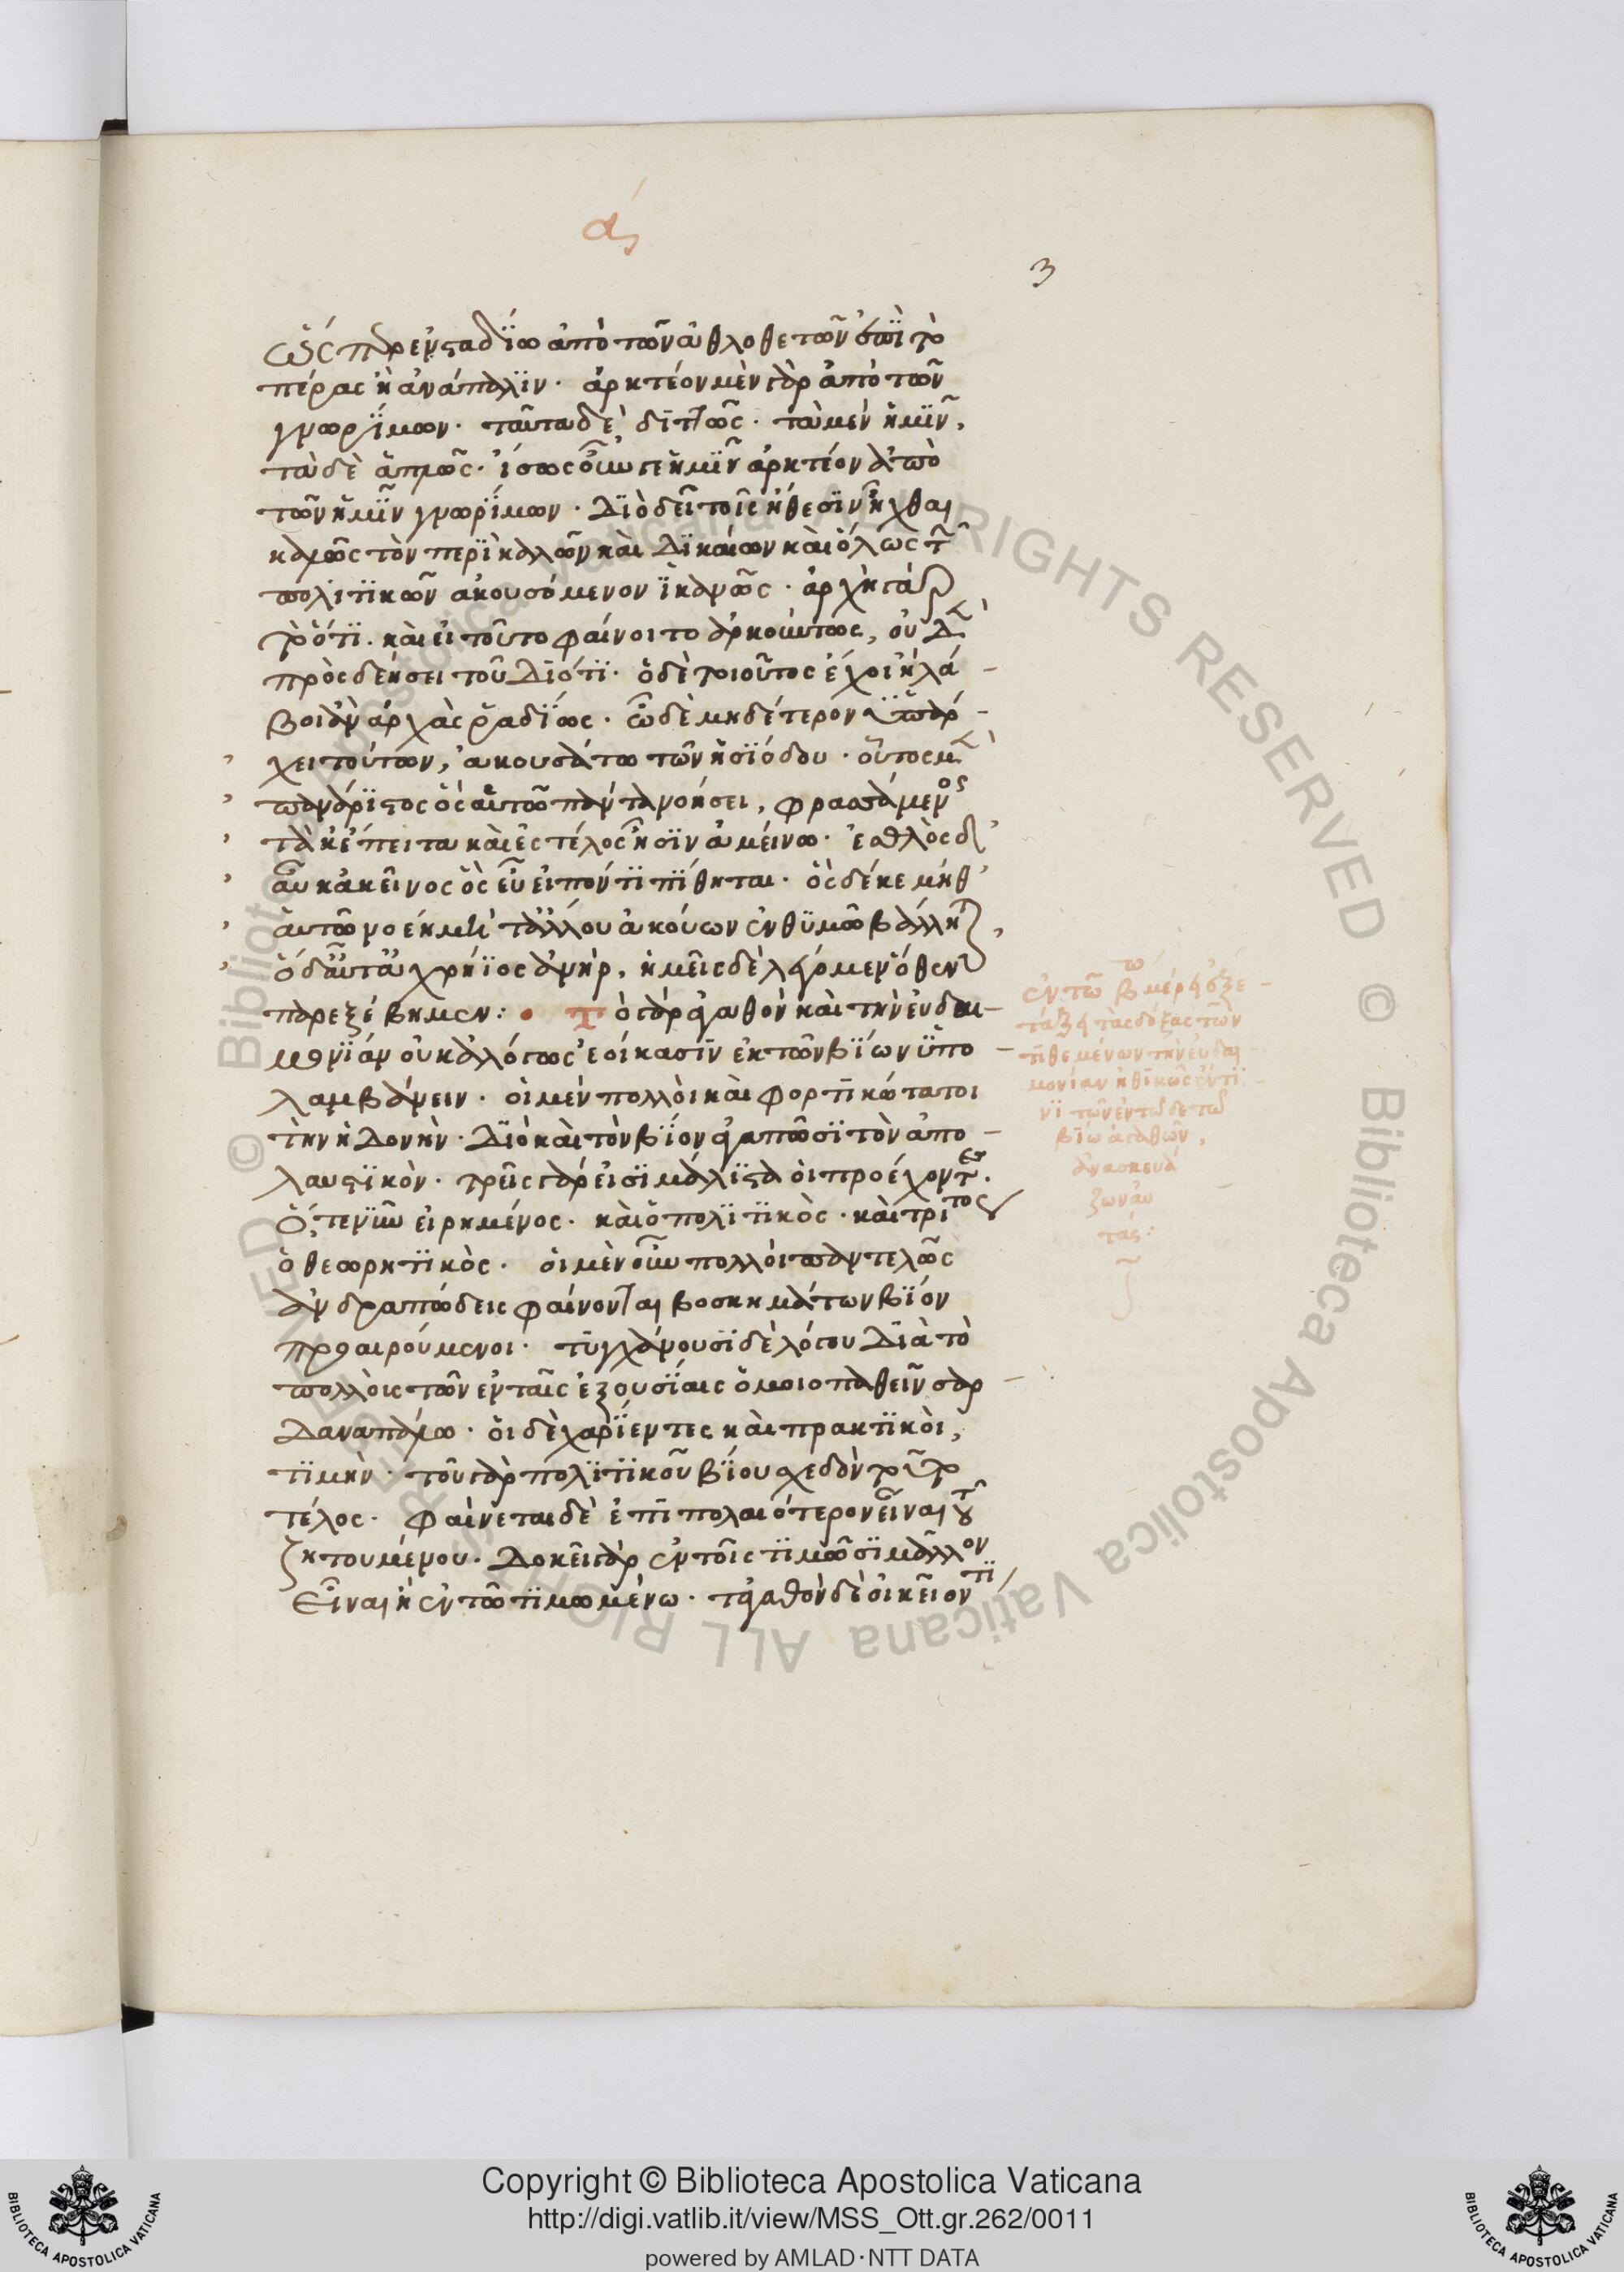 ά
3
ὥσπερ ἐν σταδίω ἀπὸ τῶν ἀθλοθετῶν ἐπὶ τὸ
πέρας ἢ ἀνάπαλιν · ἀρκτέον μὲν γὰρ ἀπὸ τῶν
γνωρίμων · ταῦτα δὲ διττῶς · τὰ μὲν ἡμῖν,
τὰ δὲ ἁπλῶς · ἴσως οὖν γε ἡμῖν ἀρκτέον ἀπὸ
τῶν ἡμῖν γνωρίμων · Διὸ δεῖ τοῖς ἤθεσιν ἦχθαι
καλῶς τὸν περὶ καλῶν καὶ Δικαίων καὶ ὅλως τῶν
πολιτικῶν ἀκουσόμενον ἱκανῶς · ἀρχὴ γὰρ
τὸ ὅτι · καὶ εἰ τοῦτο φαίνοιτο ἀρκούντως, οὐδὲν
προσδεήσει τοῦ Διότι · ὁ δὲ τοιοῦτος ἔχοι ἢ λά-
βοι ἂν ἀρχὰς ῥαδίως · ὧ δὲ μηδέτερον ὑπάρ-
χει τούτων, ἀκουσάτω τῶν ἡσιόδου · οὗτος μὲν
πανάριστος ὃς αὐτῶ πάντα νοήσει, φρασάμενος
τά κ' ἔπειτα καὶ ἐς τέλος ἦσιν ἀμείνω · ἐσθλὸς δ'
αὖ κἀκεῖνος ὃς εὖ εἰπόντι πίθηται · ὃς δέ κε μήθ'
αὐτῶ νοέη μήτ' ἄλλου ἀκούων ἐν θυμῶ βάλληται,
ὁ δ' αὖτ' ἀχρήϊος ἀνήρ, ἡμεῖς δὲ λέγομεν ὅθεν
παρεξέβημεν : · Τὸ γὰρ ἀγαθὸν καὶ τὴν εὐδαι-
μονίαν οὐκ ἀλόγως ἐοίκασιν ἐκ τῶν βίων ὑπο-
λαμβάνειν · οἱ μὲν πολλοὶ καὶ φορτικώτατοι
τὴν ἡδονήν · Διὸ καὶ τὸν βίον ἀγαπῶσι τὸν ἀπο-
λαυστικὸν · τρεῖς γάρ εἰσι μάλιστα οἱ προέχοντες ·
ὅ, τε νῦν εἰρημένος · καὶ ὁ πολιτικὸς · καὶ τρίτος
ὁ θεωρητικὸς · οἱ μὲν οὖν πολλοὶ παντελῶς
ἀνδραπώδεις φαίνονται βοσκημάτων βίον
προαιρούμενοι · τυγχάνουσι δὲ λόγου Διὰ τὸ
πολλοὺς τῶν ἐν ταῖς ἐξουσίαις ὁμοιοπαθεῖν σαρ-
Δαναπάλω · οἱ δὲ χαρίεντες καὶ πρακτικοὶ,
τιμήν · τοῦ γὰρ πολιτικοῦ βίου σχεδὸν τοῦτο
τέλος · φαίνεται δὲ ἐπιπολαιότερον εἶναι τοῦ
ζητουμένου · Δοκεῖ γὰρ ἐν τοῖς τιμῶσι μᾶλλον
εἶναι ἢ ἐν τῶ τιμωμένω · τἀγαθὸν δὲ οἰκεῖόν τι
ἐν τῶ β τω μέρει ἐξε-
τάζει τὰς δόξας τῶν
τιθεμένων τὴν εὐδαι-
μονίαν ἠθικῶς ἔν τι-
νι τῶν ἐν τῶδε τῶ
βίω ἀγαθῶν,
ἀνασκευά-
ζων αὐ-
τάς :
Copyright © Biblioteca Apostolica Vaticana
http://digi.vatlib.it/view/MSS_Ott.gr.262/0011
powered by AMLAD·NTT DATA